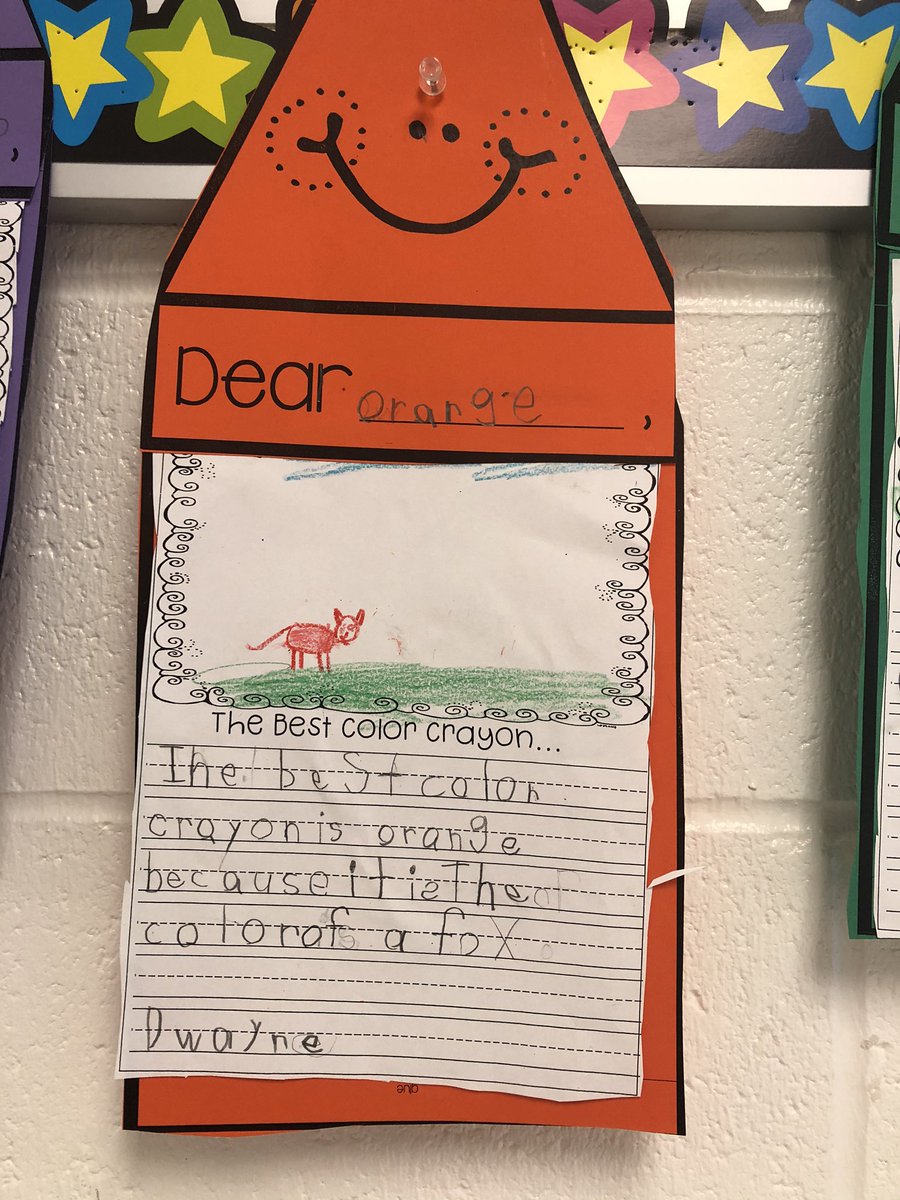 Dear orange,
The Best Color Crayon...
The best color
crayon is orange
because it is The
color of a fox.
Dwayne
glue